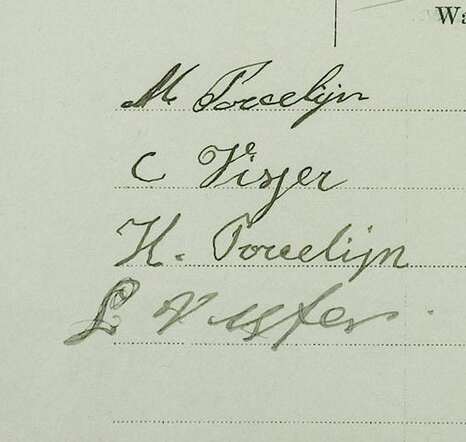 Wa
M Porcelijn
C Visser
H. Porcelijn
L Visser